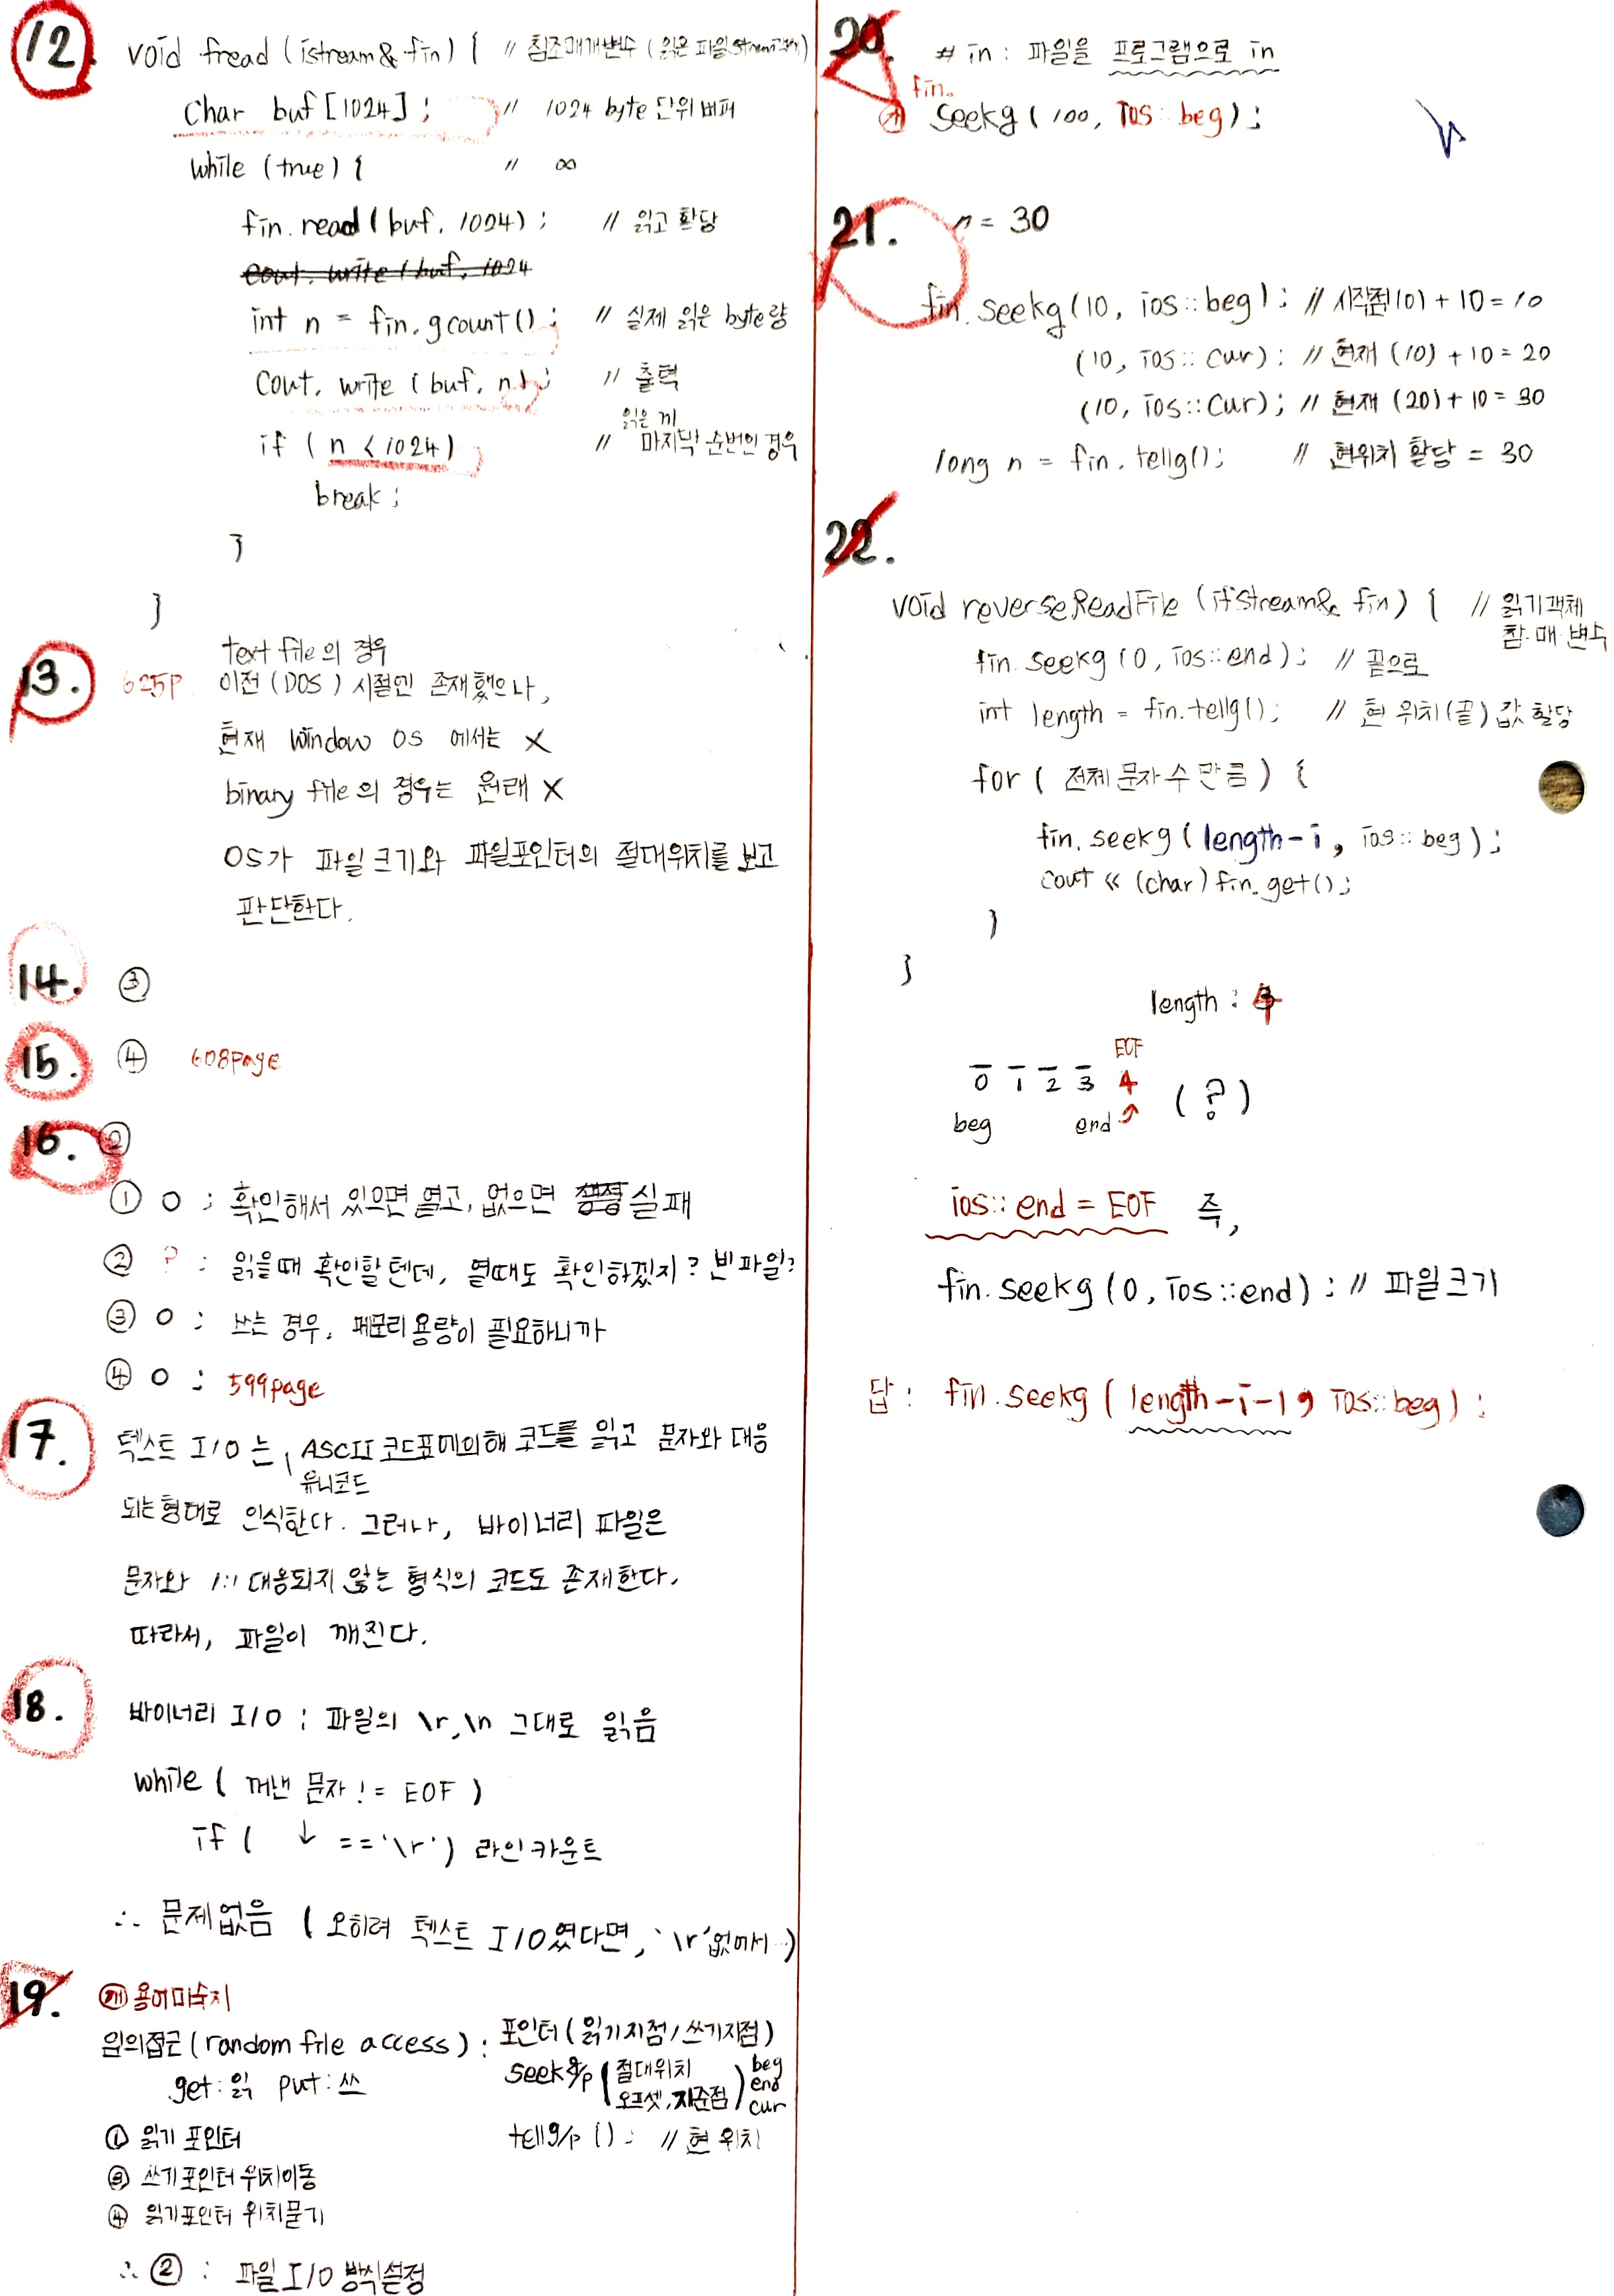 12. void fread (istream& fin) { // 참조매개변수 (읽은 파일 stream객체)
char buf [1024] ; // 1024 byte 단위 버퍼
while (true) { // ∞
fin.read (buf, 1024) ; // 읽고 할당
cout. write (buf, 1024
int n = fin.gcount() ; // 실제 읽은 byte량
cout. write (buf, n) ; // 출력
if ( n < 1024) // 읽은 게 마지막 순번인 경우
break ;
}
}
13. 625p text file의 경우
이전 (DOS) 시절엔 존재했으나,
현재 Window OS 에서는 X
binary file의 경우는 원래 X
OS가 파일크기와 파일포인터의 절대위치를 보고
판단한다.
14. ③
15. ④ 608page
16. ②
① O : 확인해서 있으면 열고, 없으면 생성 실패
② ? : 읽을때 확인할텐데, 열때도 확인하겠지? 빈파일?
③ O : 쓰는 경우, 메모리 용량이 필요하니까
④ O : 599page
17. 텍스트 I/O 는, ASCII 코드표에의해 코드를 읽고 문자와 대응
유니코드
되는형태로 인식한다. 그러나, 바이너리 파일은
문자와 1:1 대응되지 않는 형식의 코드도 존재한다.
따라서, 파일이 깨진다.
18. 바이너리 I/O : 파일의 \r,\n 그대로 읽음
while ( 꺼낸 문자 != EOF )
if ( ↓ == '\r') 라인카운트
∴ 문제없음 ( 오히려 텍스트 I/O였다면, '\r' 없애서 )
19. 개 용어미숙지
임의접근 (random file access) : 포인터 (읽기지점/쓰기지점)
get : 읽 put : 쓰 seekg/p ( 절대위치 오프셋, 기준점 ) beg end cur
① 읽기 포인터 tellg/p () ; // 현 위치
③ 쓰기포인터 위치이동
④ 읽기포인터 위치묻기
∴ ② : 파일 I/O 방식설정
20. # in : 파일을 프로그램으로 in
fin.
seekg ( 100, ios::beg) ;
21. n = 30
fin. seekg (10, ios::beg) ; // 시작점(0) + 10 = 10
(10, ios::cur) ; // 현재 (10) + 10 = 20
(10, ios::cur) ; // 현재 (20) + 10 = 30
long n = fin.tellg() ; // 현위치 할당 = 30
22.
void reverseReadFile (ifstream& fin) { // 읽기객체
참.매.변수
fin. seekg (0, ios::end) ; // 끝으로
int length = fin.tellg() ; // 현 위치(끝) 값 할당
for ( 전체 문자 수 만큼 ) {
fin. seekg ( length-i, ios::beg ) ;
cout << (char) fin.get() ;
}
}
length : 4
EOF
0 1 2 3 4 (?)
beg end
ios::end = EOF 즉,
fin. seekg (0, ios::end) ; // 파일크기
답 : fin.seekg ( length-i-1, ios::beg) ;